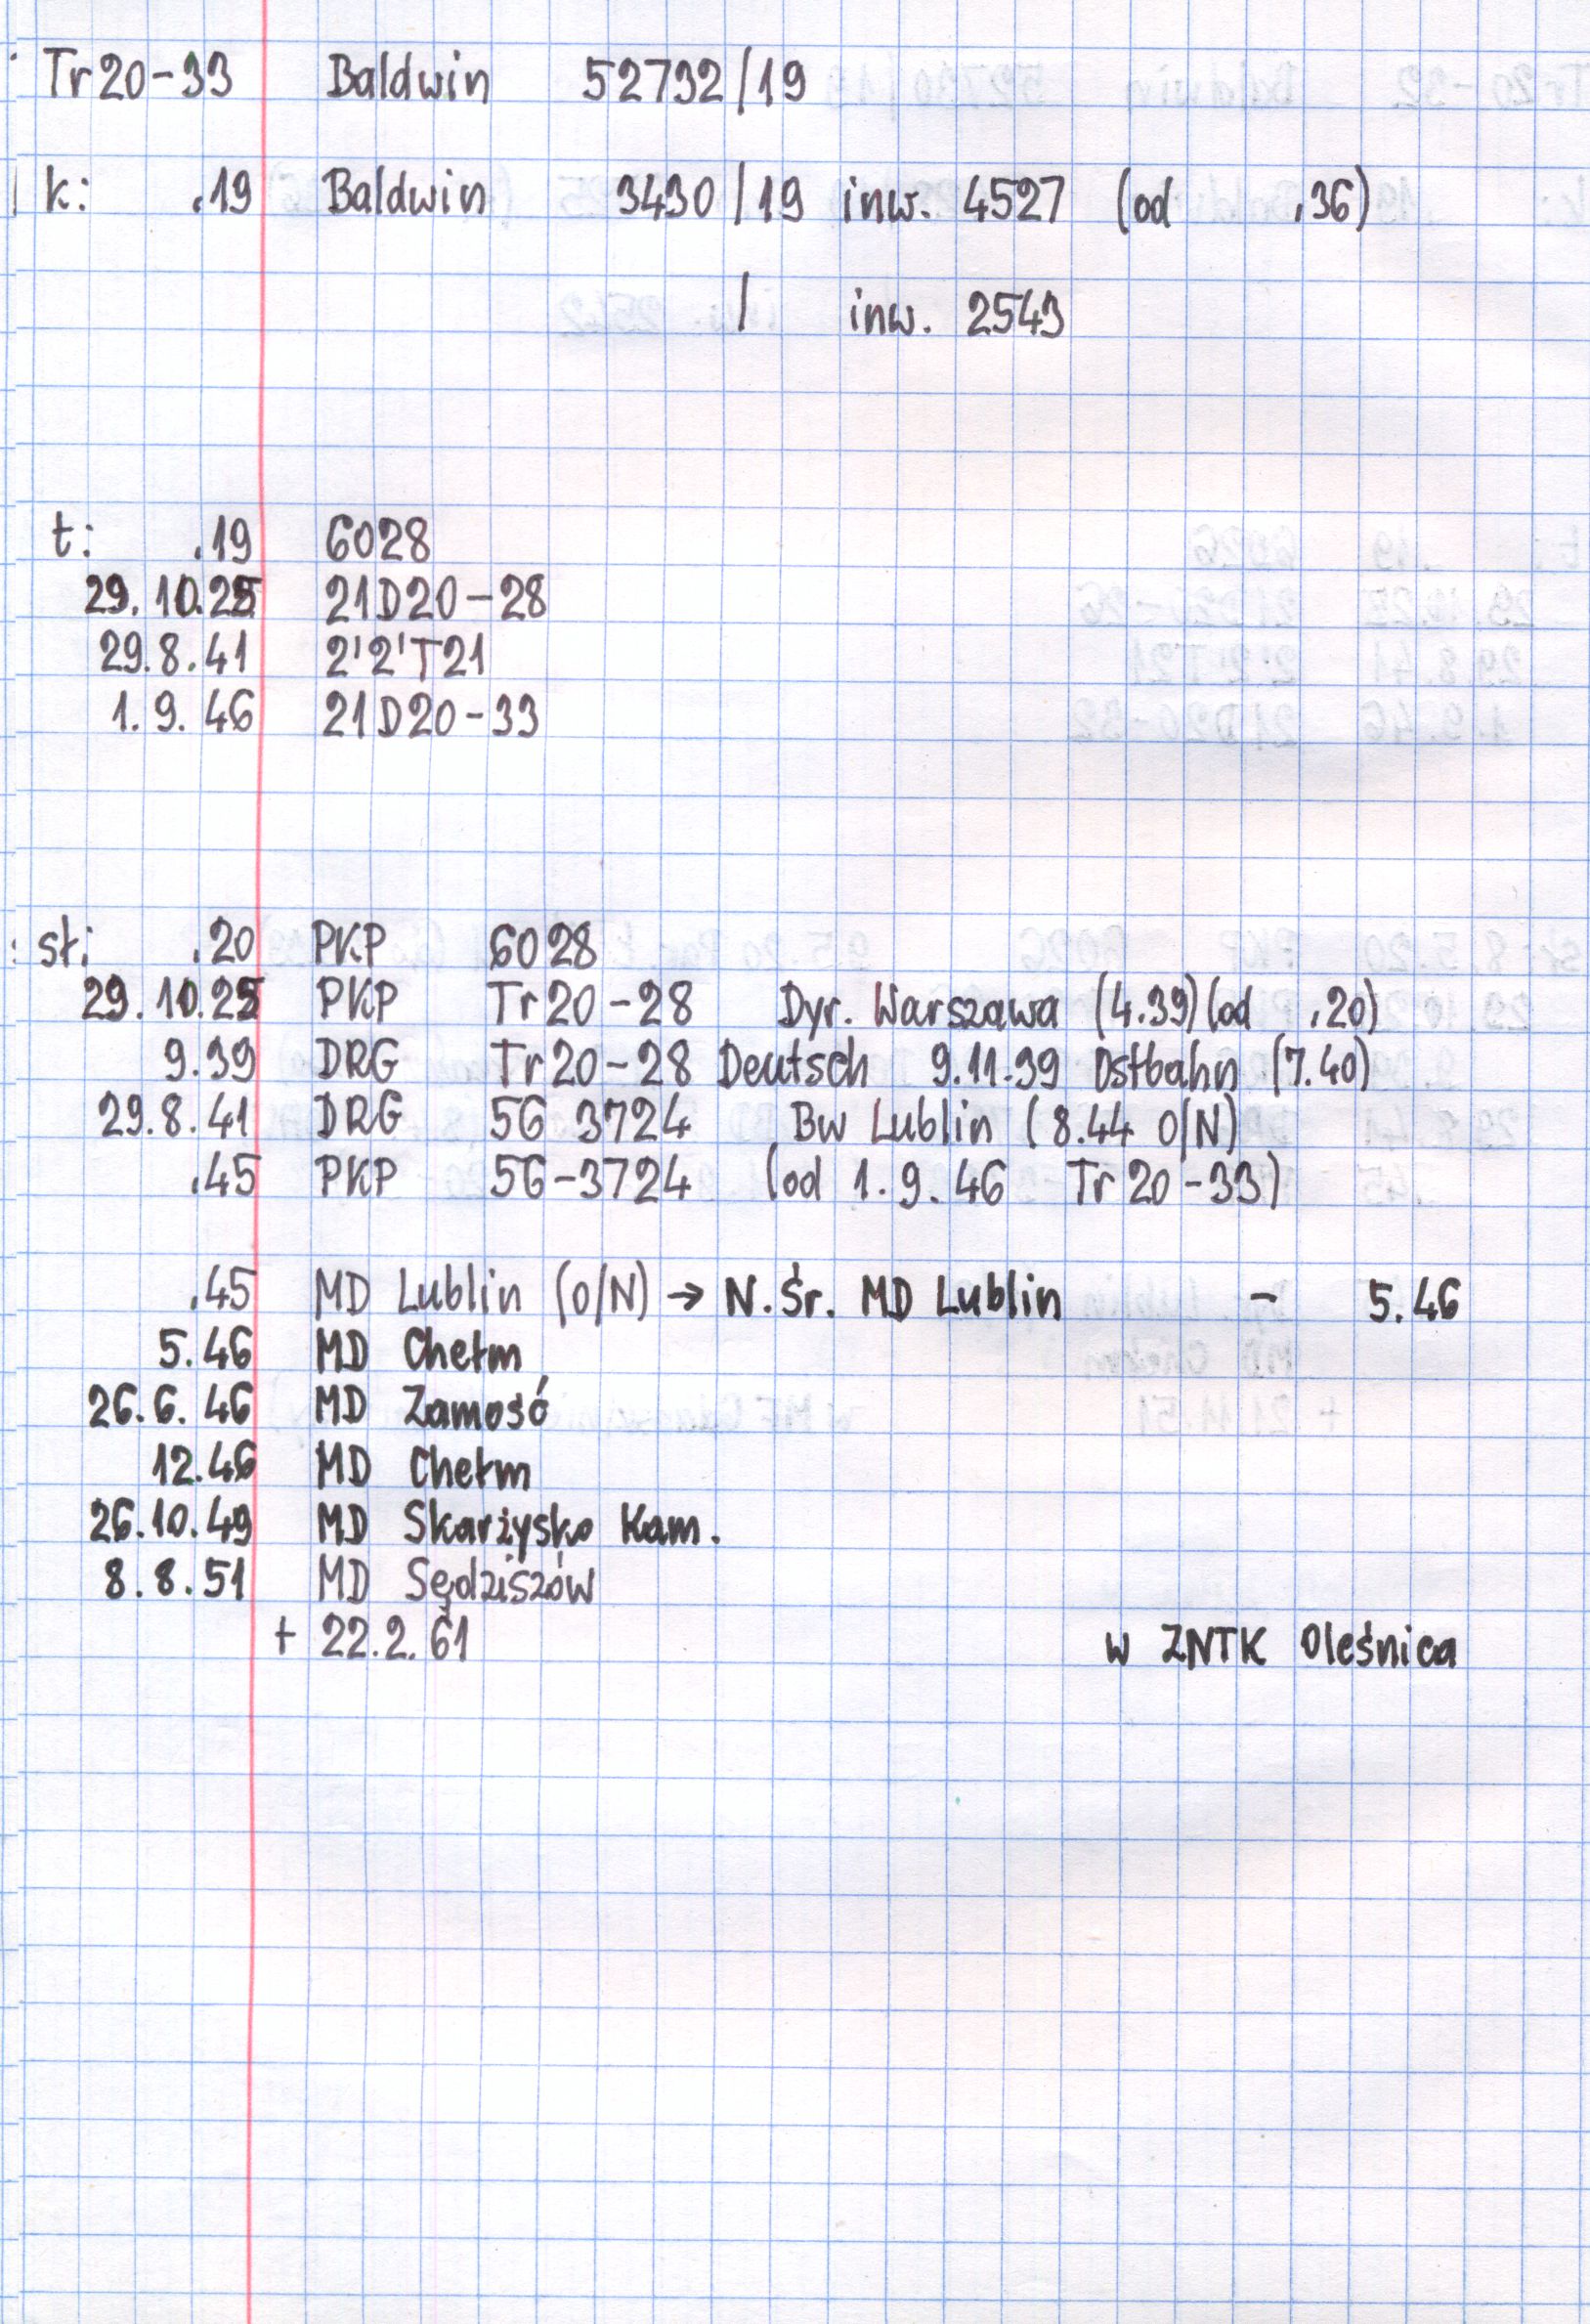 Tr20-33 Baldwin 52732/19
k: .19 Baldwin 3430/19 inw. 4527 (od .36)
/ inw. 2543
t: .19 6028
29.10.25 21D20-28
29.8.41 2'2'T21
1.9.46 21D20-33
sł: .20 PKP 6028
29.10.25 PKP Tr20-28 Dyr. Warszawa (4.39)(od .20)
9.39 DRG Tr20-28 Deutsch 9.11.39 Ostbahn (7.40)
29.8.41 DRG 56 3724 Bw Lublin (8.44 O/N)
.45 PKP 56-3724 (od 1.9.46 Tr20-33)
.45 MD Lublin (O/N) → N.Śr. MD Lublin - 5.46
5.46 MD Chełm
26.6.46 MD Zamość
12.46 MD Chełm
26.10.49 MD Skarżysko Kam.
8.8.51 MD Sędziszów
+ 22.2.61 w ZNTK Oleśnica